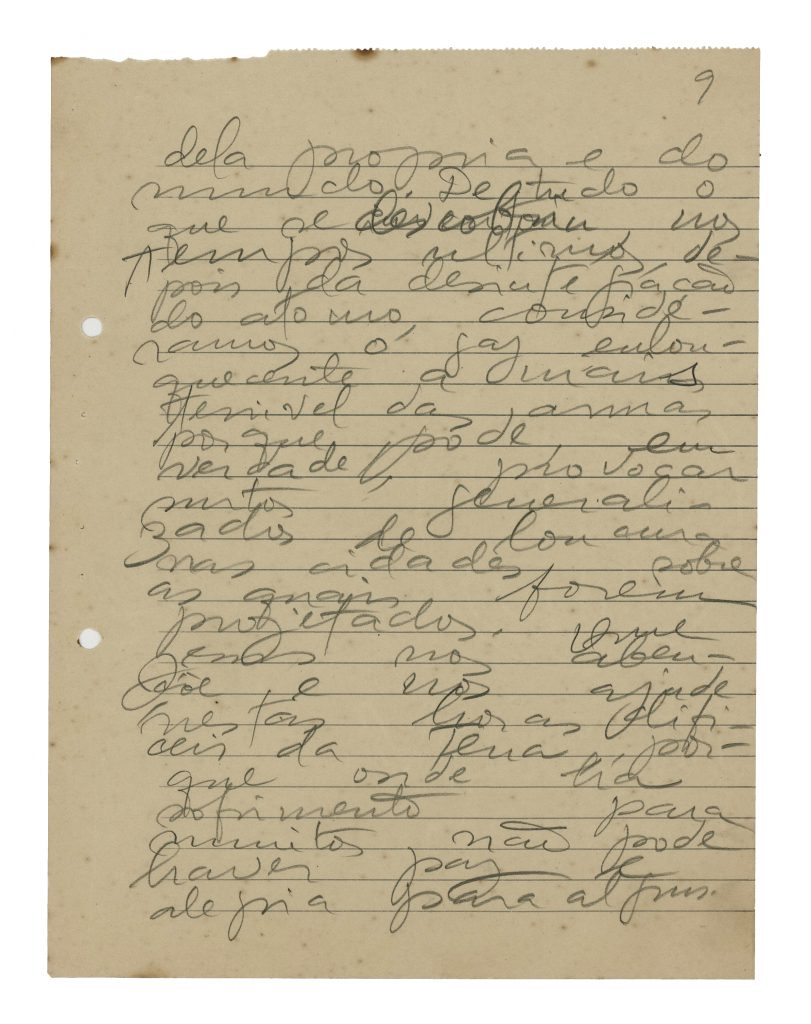 9
dela propria e do
mundo. De tudo o
que se descobriu, nos
tempos ultimos, de-
pois da desintegração
do atomo, conside-
ramos o gaz enlou-
quecente a mais
terrivel das armas
porque pode, em
verdade, provocar
surtos generali-
zados de loucura
nas cidades sobre
as quais forem
projetados. Que
Jesus nos aben-
çôe e nos ajude
nestas horas difi-
ceis da Terra, por-
que onde há
sofrimento para
muitos não pode
haver paz e
alegria para alguns.